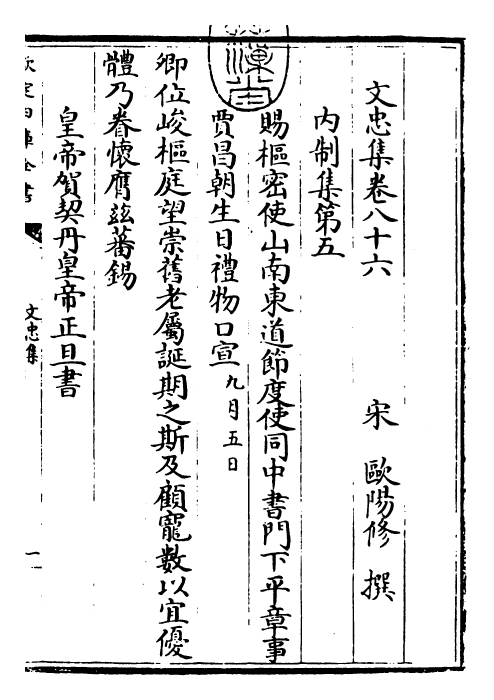 文忠集卷八十六　　宋　歐陽修　撰
内制集第五
賜樞密使山南東道節度使同中書門下平章事
賈昌朝生日禮物口宣九月五日
卿位峻樞庭望崇舊老屬誕期之斯及顧寵數以宜優
體乃眷懷膺兹蕃錫
皇帝賀契丹皇帝正旦書
欽定四庫全書
文忠集
一